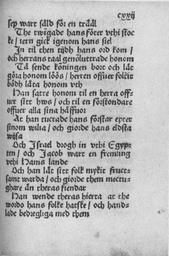 cxxij
sep wart såld för en trääl
The twigade hans förer vthi stoc
ke / iern gick igenom hans siel
In til then tijdh hans ord kom /
och herrans taal genoluttrade honom
Tå sende köningen bort och lät
göra honom löös / herren offuer folkit
bödh låta honom vth
Han satte honom til en herra off
uer sitt hws / och til en förstondare
offuer alla sina häffuor
At han tuctade hans förstar eper
sinom wilia / och giorde hans eldsta
wisa
Och Israel drogh in vthi Egyp
ten / och Jacob wart en fremling
vthi Hams lande
Och han lät sitt folk mykit fruct
samt warda / och giorde them mectu
ghare än theras fiendar
Han wende theras hierta at the
wordo hans folke hatske / och hand
lade bedregliga med them